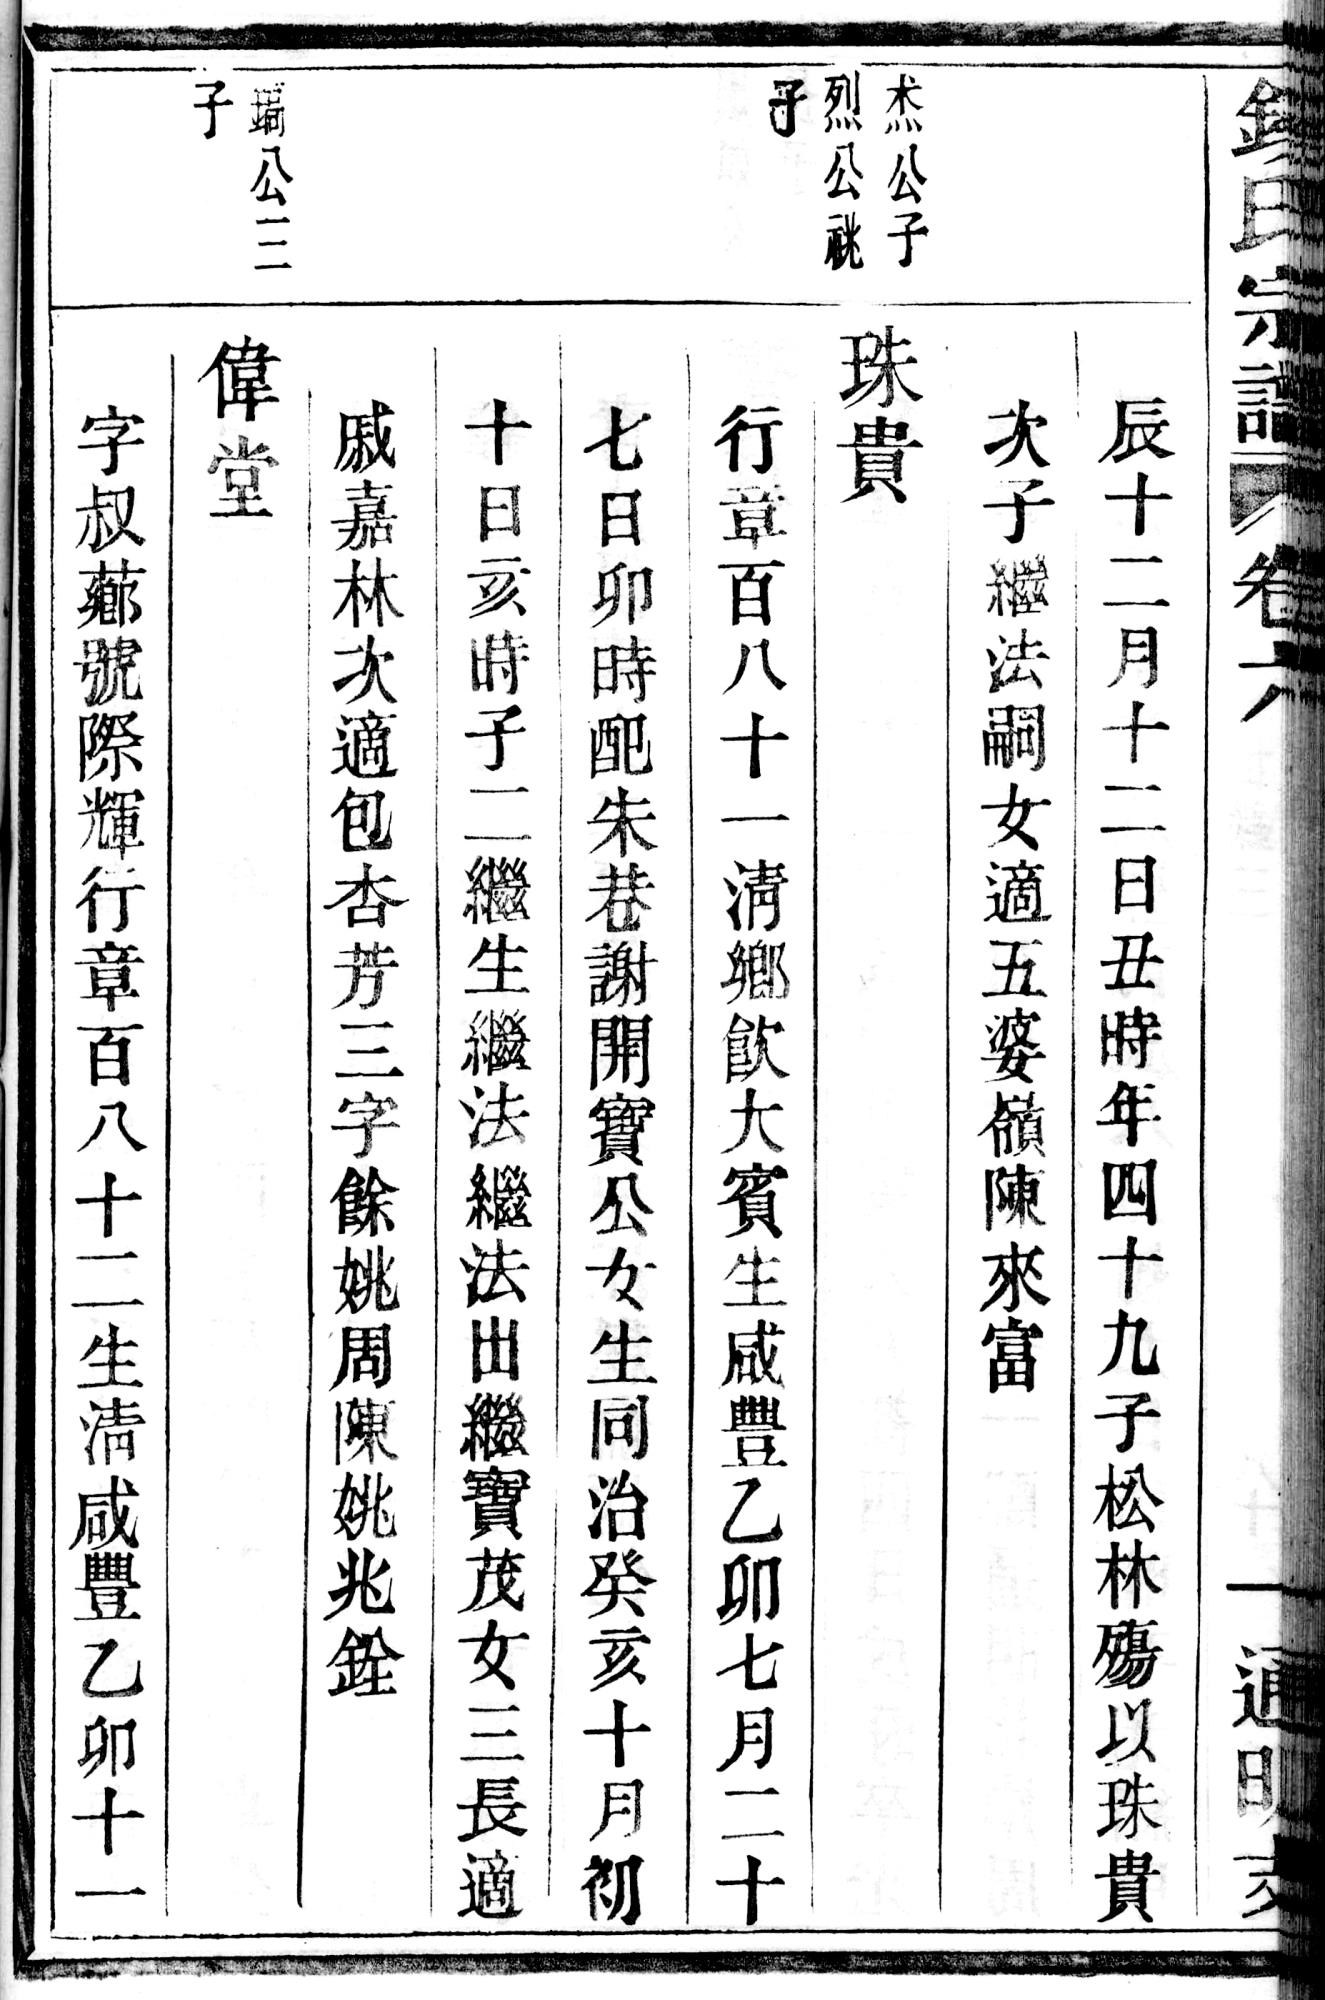 錢氏宗譜 卷六 一 通明支
辰十二月十二日丑時年四十九子松林殤以珠貴
次子繼法嗣女適五婆嶺陳來富
杰公子
烈公祧
子
珠貴
行章百八十一清鄉飲大賓生咸豐乙卯七月二十
七日卯時配朱巷謝開寶公女生同治癸亥十月初
十日亥時子二繼生繼法繼法出繼寶茂女三長適
戚嘉林次適包杏芳三字餘姚周陳姚兆銓
公三
子
偉堂
字叔薌號際輝行章百八十二生清咸豐乙卯十一